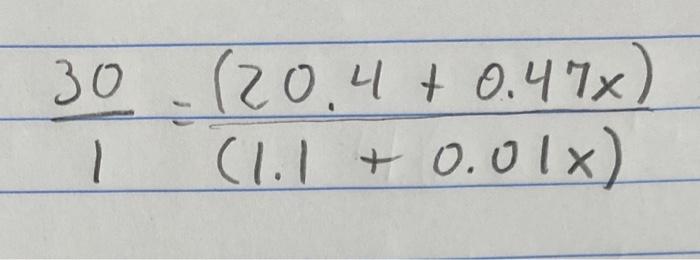 30/1 = (20.4 + 0.47x)/(1.1 + 0.01x)